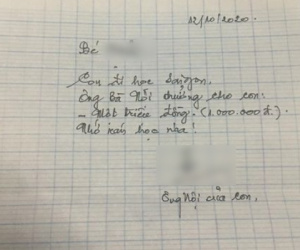 12/10/2020.
Bé
Con đi học Saigon.
Ông Bà Nội thưởng cho con.
- Một triệu đồng. (1.000.000đ).
Nhớ ráng học nha!
Ông Nội của con.